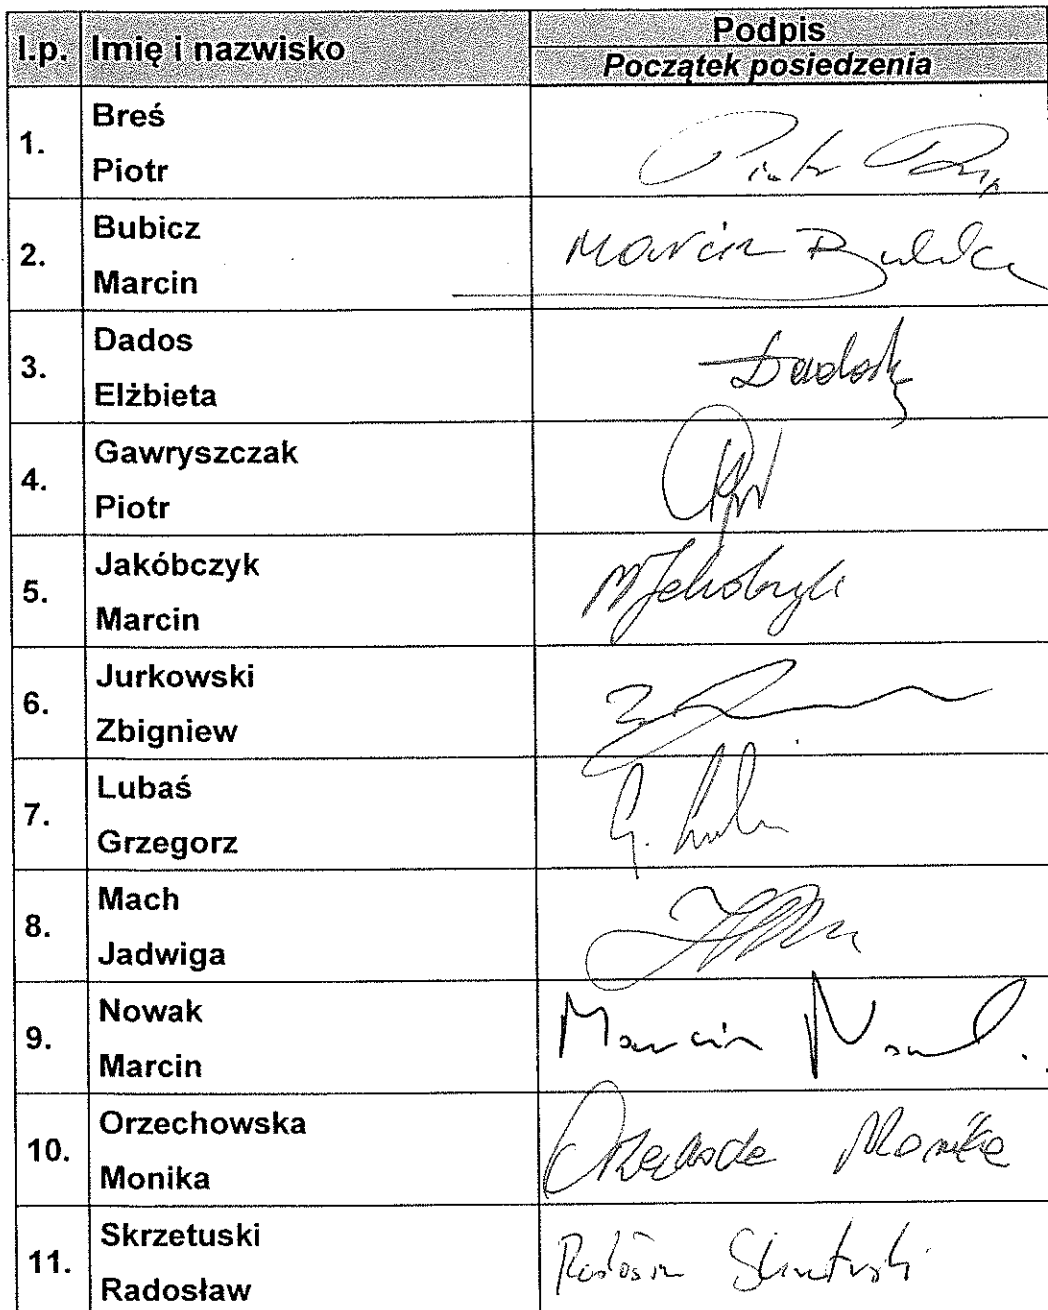 l.p. Imię i nazwisko Podpis
Początek posiedzenia
1. Breś
Piotr
Piotr
2. Bubicz
Marcin
Marcin
3. Dados
Elżbieta
4. Gawryszczak
Piotr
5. Jakóbczyk
Marcin
6. Jurkowski
Zbigniew
7. Lubaś
Grzegorz
G.
8. Mach
Jadwiga
9. Nowak
Marcin
Marcin Nowak
10. Orzechowska
Monika
Monika
11. Skrzetuski
Radosław
Skrzetuski